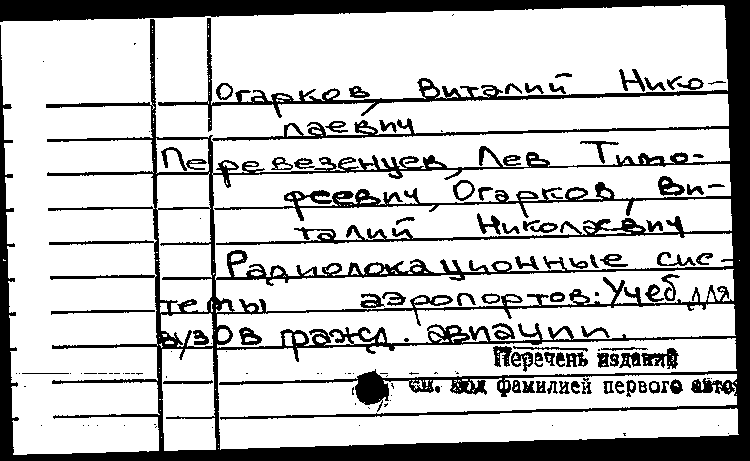 Огарков, Виталий Нико-
лаевич
Перевезенцев, Лев Тимо-
феевич, Огарков, Ви-
талий Николаевич
Радиолокационные сис-
темы аэропортов: Учеб. для
вузов гражд. авиации.
Перечень изданий
см. под фамилией первого авто